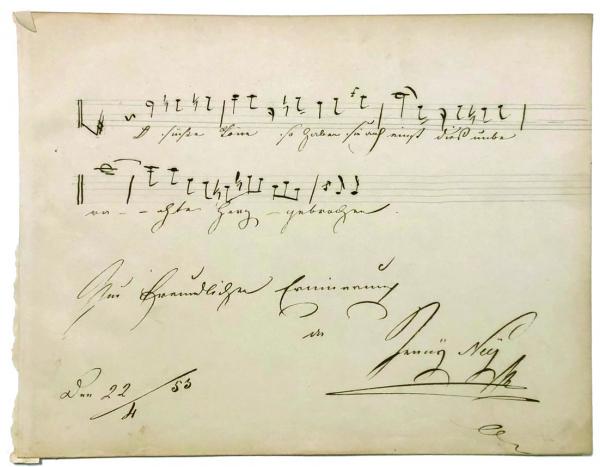 O süße Töne so haben sie auch einst dies unbe
wa - - chte Herz - gebrochen.
Zur freundlichen Erinnerung
an
Jenny Ney
Den 22/4 53